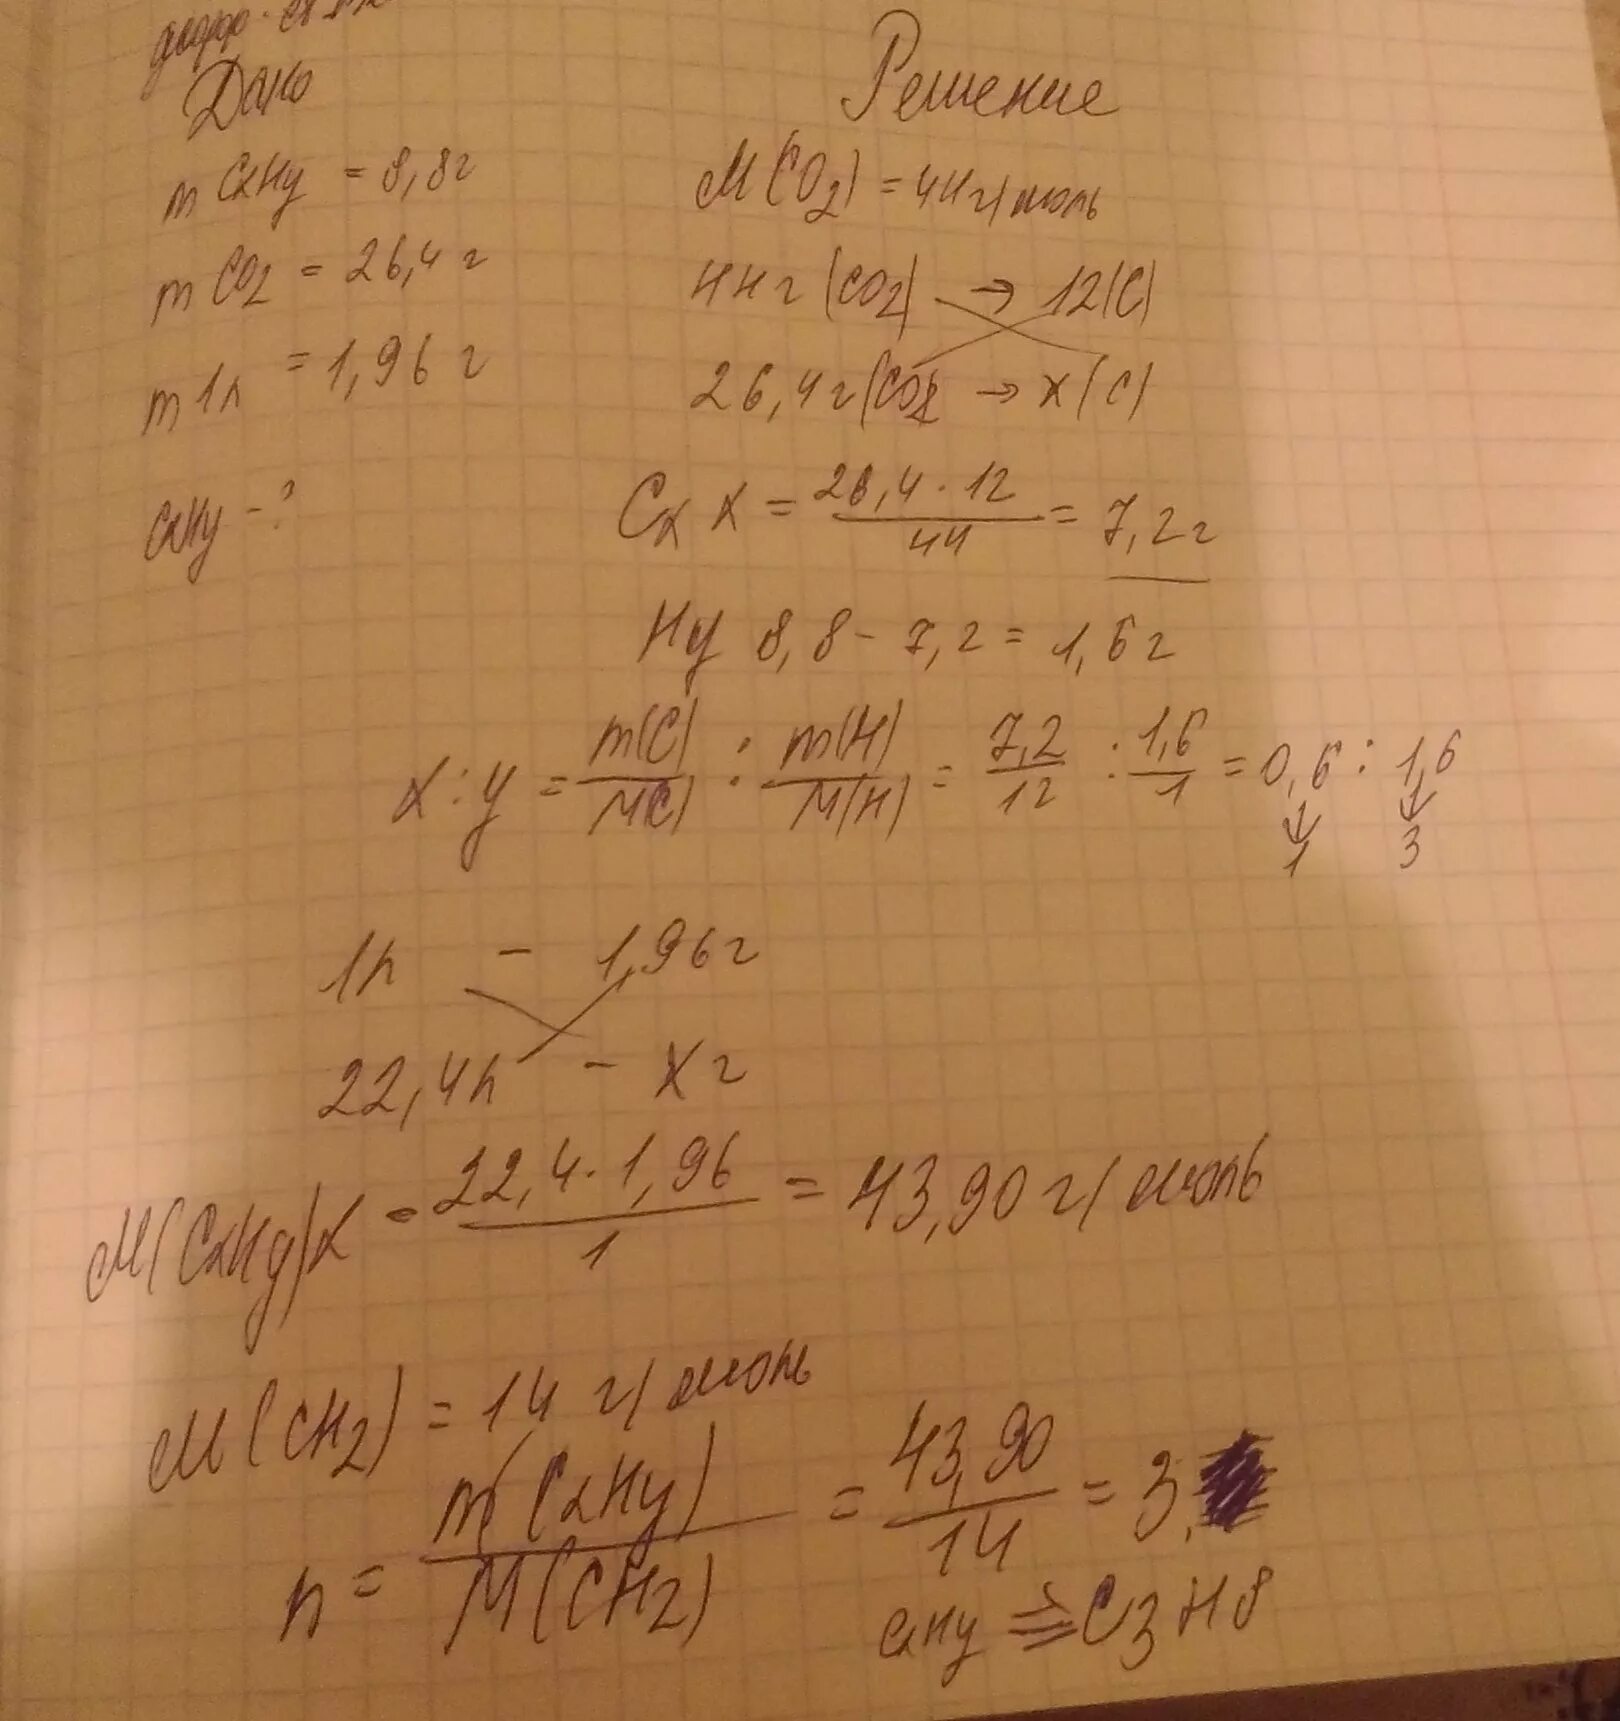 Дано
m CxHy = 8,8г
m CO2 = 26,4 г
m 1л = 1,96 г
CxHy - ?
Решение
M(CO2) = 44г/моль
44г (CO2) → 12(C)
26,4г(CO2 → x(C)
Cx x = 26,4 · 12 / 44 = 7,2г
Hy 8,8 - 7,2 = 1,6г
x : y = m(C) / M(C) : m(H) / M(H) = 7,2 / 12 : 1,6 / 1 = 0,6 : 1,6
↓ ↓
1 3
1л - 1,96г
22,4л - xг
M(CxHy)x = 22,4 · 1,96 / 1 = 43,90 г/моль
M(CH2) = 14 г/моль
n = m(CxHy) / M(CH2) = 43,90 / 14 = 3,
CxHy => C3H8